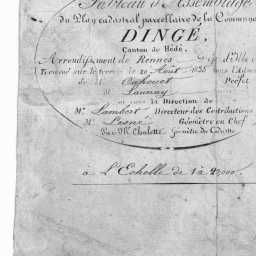 Tableau d'Assemblage
du Plan cadastral parcellaire de la Commune
D'INGÉ,
Canton de Hédé,
Arrondissement de Rennes
Terminé sur le terrain le 20 Août 1835 sous l'Admon
Préfet
Launay
et sous la Direction de
Mr. Lambert Directeur des Contributions
Mr. Lesné Géomètre en Chef
Par Mr. Chalette Géomètre du Cadastre
à L'Echelle de 1 à 20,000.